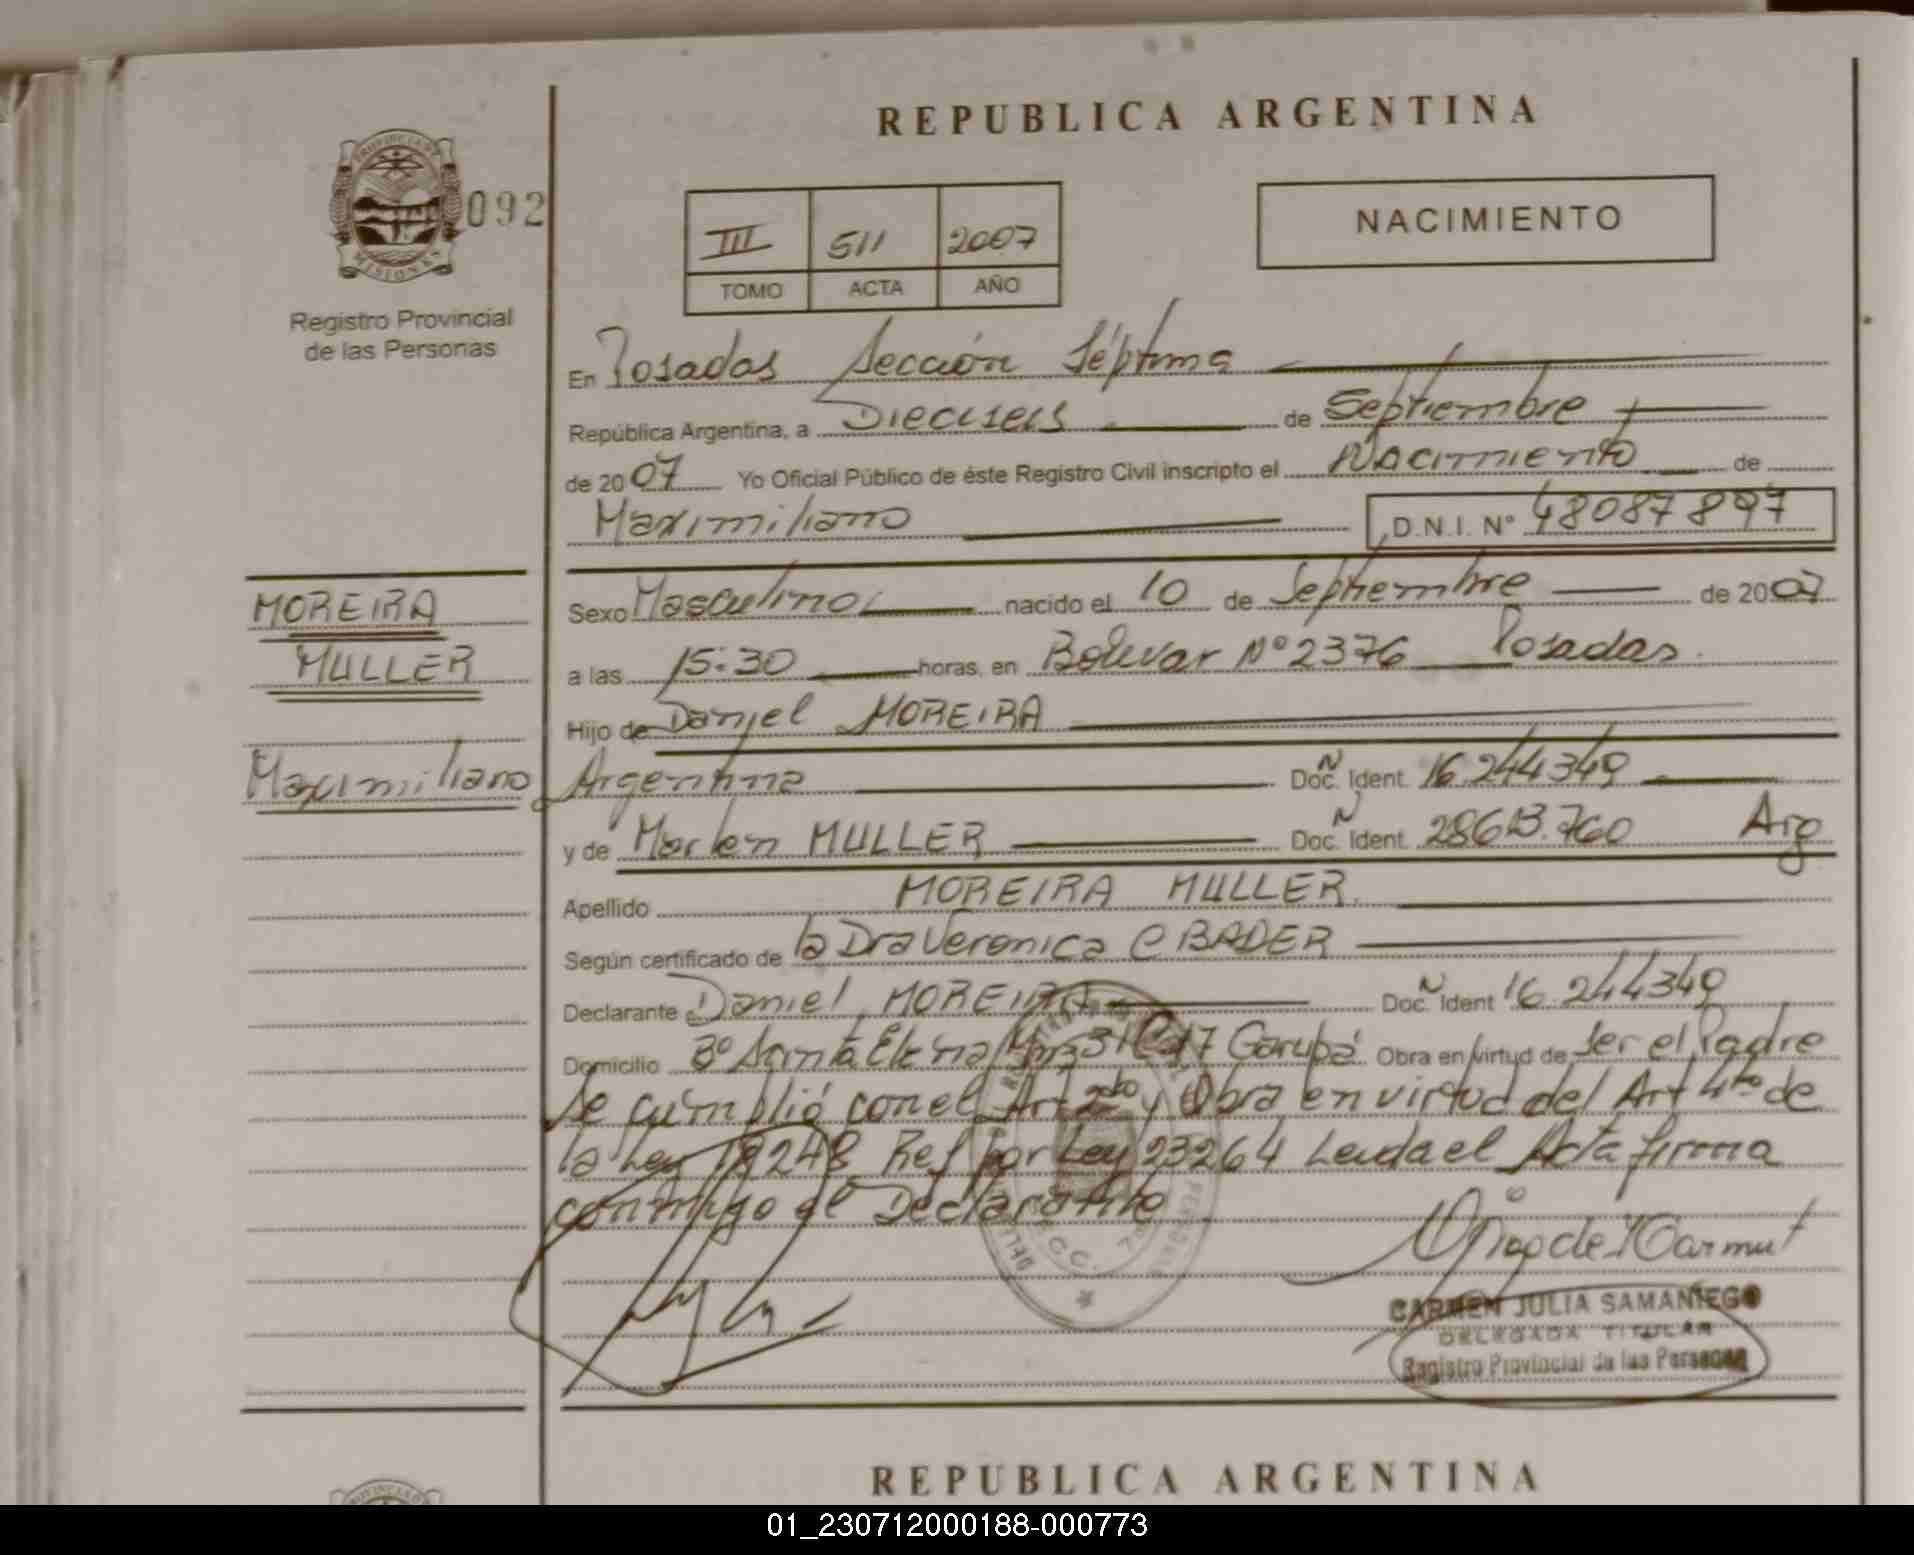 REPUBLICA ARGENTINA
PROVINCIA DE
MISIONES
092
Registro Provincial
de las Personas
III 511 2007
TOMO ACTA AÑO
NACIMIENTO
En Posadas Sección Séptima
República Argentina, a Dieciseis de Septiembre
de 2007 Yo Oficial Público de éste Registro Civil inscripto el Nacimiento de
Maximiliano D.N.I. Nº 48087897
MOREIRA
MULLER
Maximiliano
Sexo Masculino nacido el 10 de Septiembre de 2007
a las 15:30 horas, en Bolivar Nº 2376 Posadas.
Hijo de Daniel MOREIRA
Argentina Doc. N Ident. 16.244349
y de Marlen MULLER Doc. N Ident. 28613.760 Arg
Apellido MOREIRA MULLER.
Según certificado de la Dra Veronica C BADER
Declarante Daniel MOREIRA Doc. N Ident 16.244349
Domicilio Bº Santa Elena Mz 31 C 17 Garupá Obra en virtud de Ser el Padre
Se cumplió con el Art 2do y Obra en virtud del Art 4to de
la Ley 18248 Ref por Ley 23264 Leida el Acta firma
conmigo el Declarante
CARMEN JULIA SAMANIEGO
DELEGADA TITULAR
Registro Provincial de las Personas
REPUBLICA ARGENTINA
01_230712000188-000773